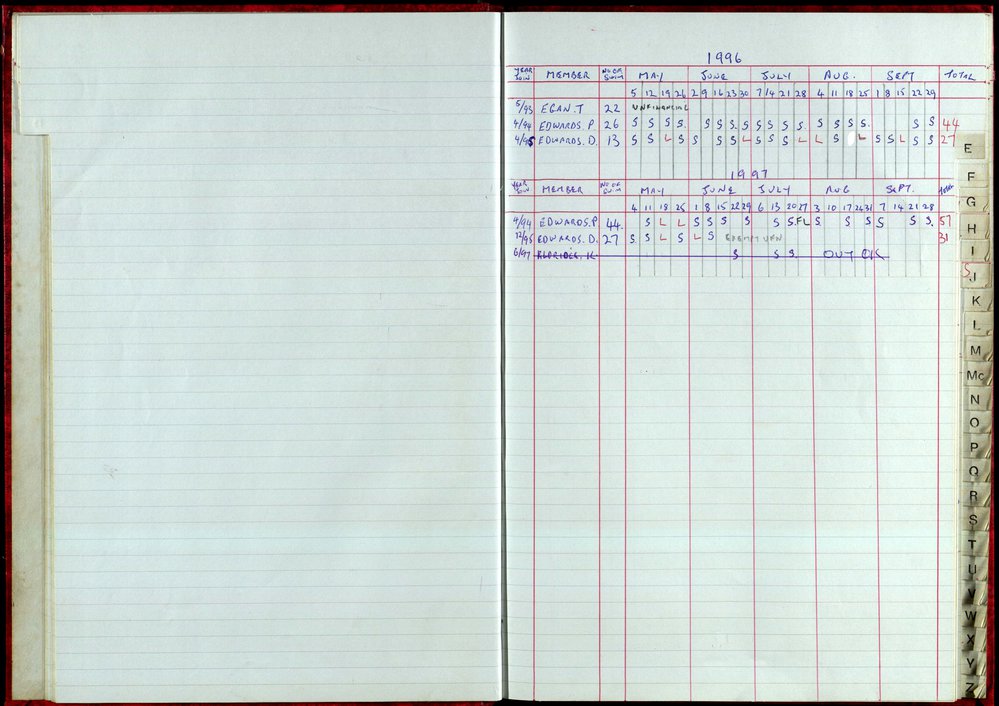 1996
YEAR JOIN MEMBER NO OF SWIM MAY JUNE JULY AUG. SEPT TOTAL
5 12 19 26 2 9 16 23 30 7 14 21 28 4 11 18 25 1 8 15 22 29
5/93 EGAN.T 22 UNFINANCIAL
4/94 EDWARDS. P. 26 S S S S. S S S. S S S S S. S S S S. S S 44
4/95 EDWARDS. D. 13 S S L S S S S L S S S L L S L S S L S S 27
1997
YEAR JOIN MEMBER NO OF SWIM MAY JUNE JULY AUG SEPT. TOTAL
4 11 18 25 1 8 15 22 29 6 13 20 27 3 10 17 24 31 7 14 21 28
4/94 EDWARDS. P. 44. S L L S S S S S S. FL S S S S S S. 57
12/95 EDWARDS. D. 27 S. S L S L S EXEMPT 31
6/97 ELDRIDGE. K. S S S. OUT OK
E
F
G
H
I
J
K
L
M
Mc
N
O
P
Q
R
S
T
U
V
W
X
Y
Z